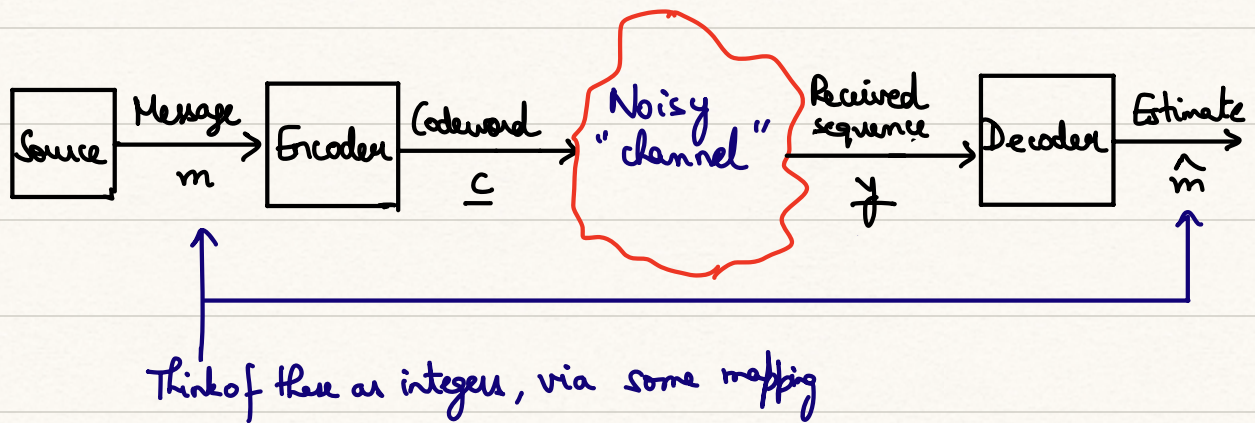 Source
Message
m
Encoder
Codeword
c
Noisy
"channel"
Received
sequence
y
Decoder
Estimate
m̂
Think of these as integers, via some mapping